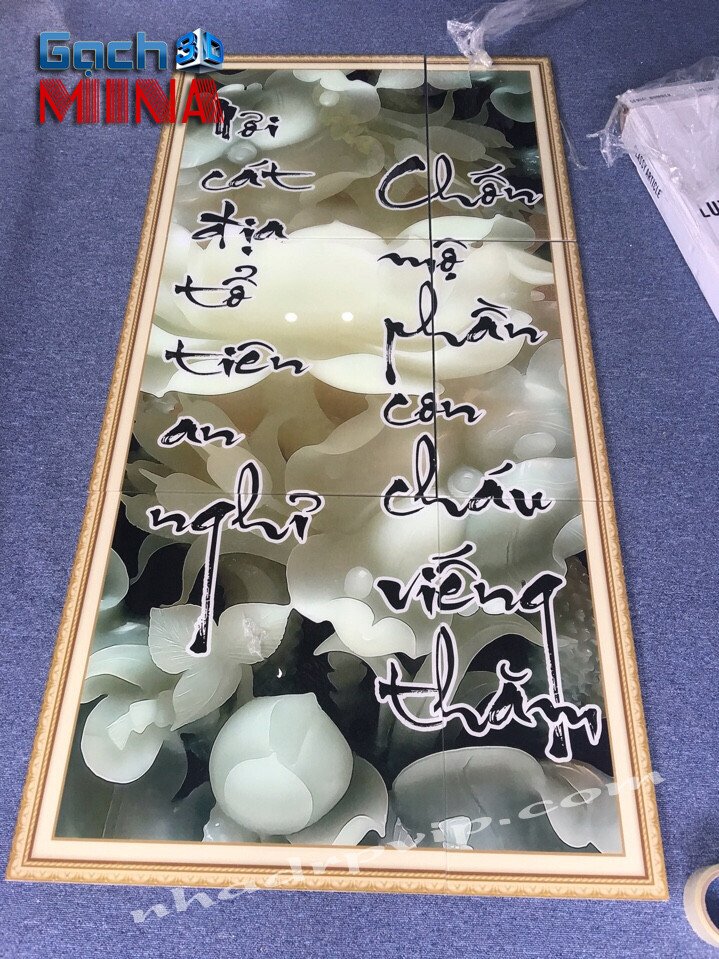 Gạch 3D
MINA
Nơi
cát
địa
tổ
tiên
an
nghỉ
Chốn
mộ
phần
con
cháu
viếng
thăm
nhadrpvip.com
ARTICLE
LU